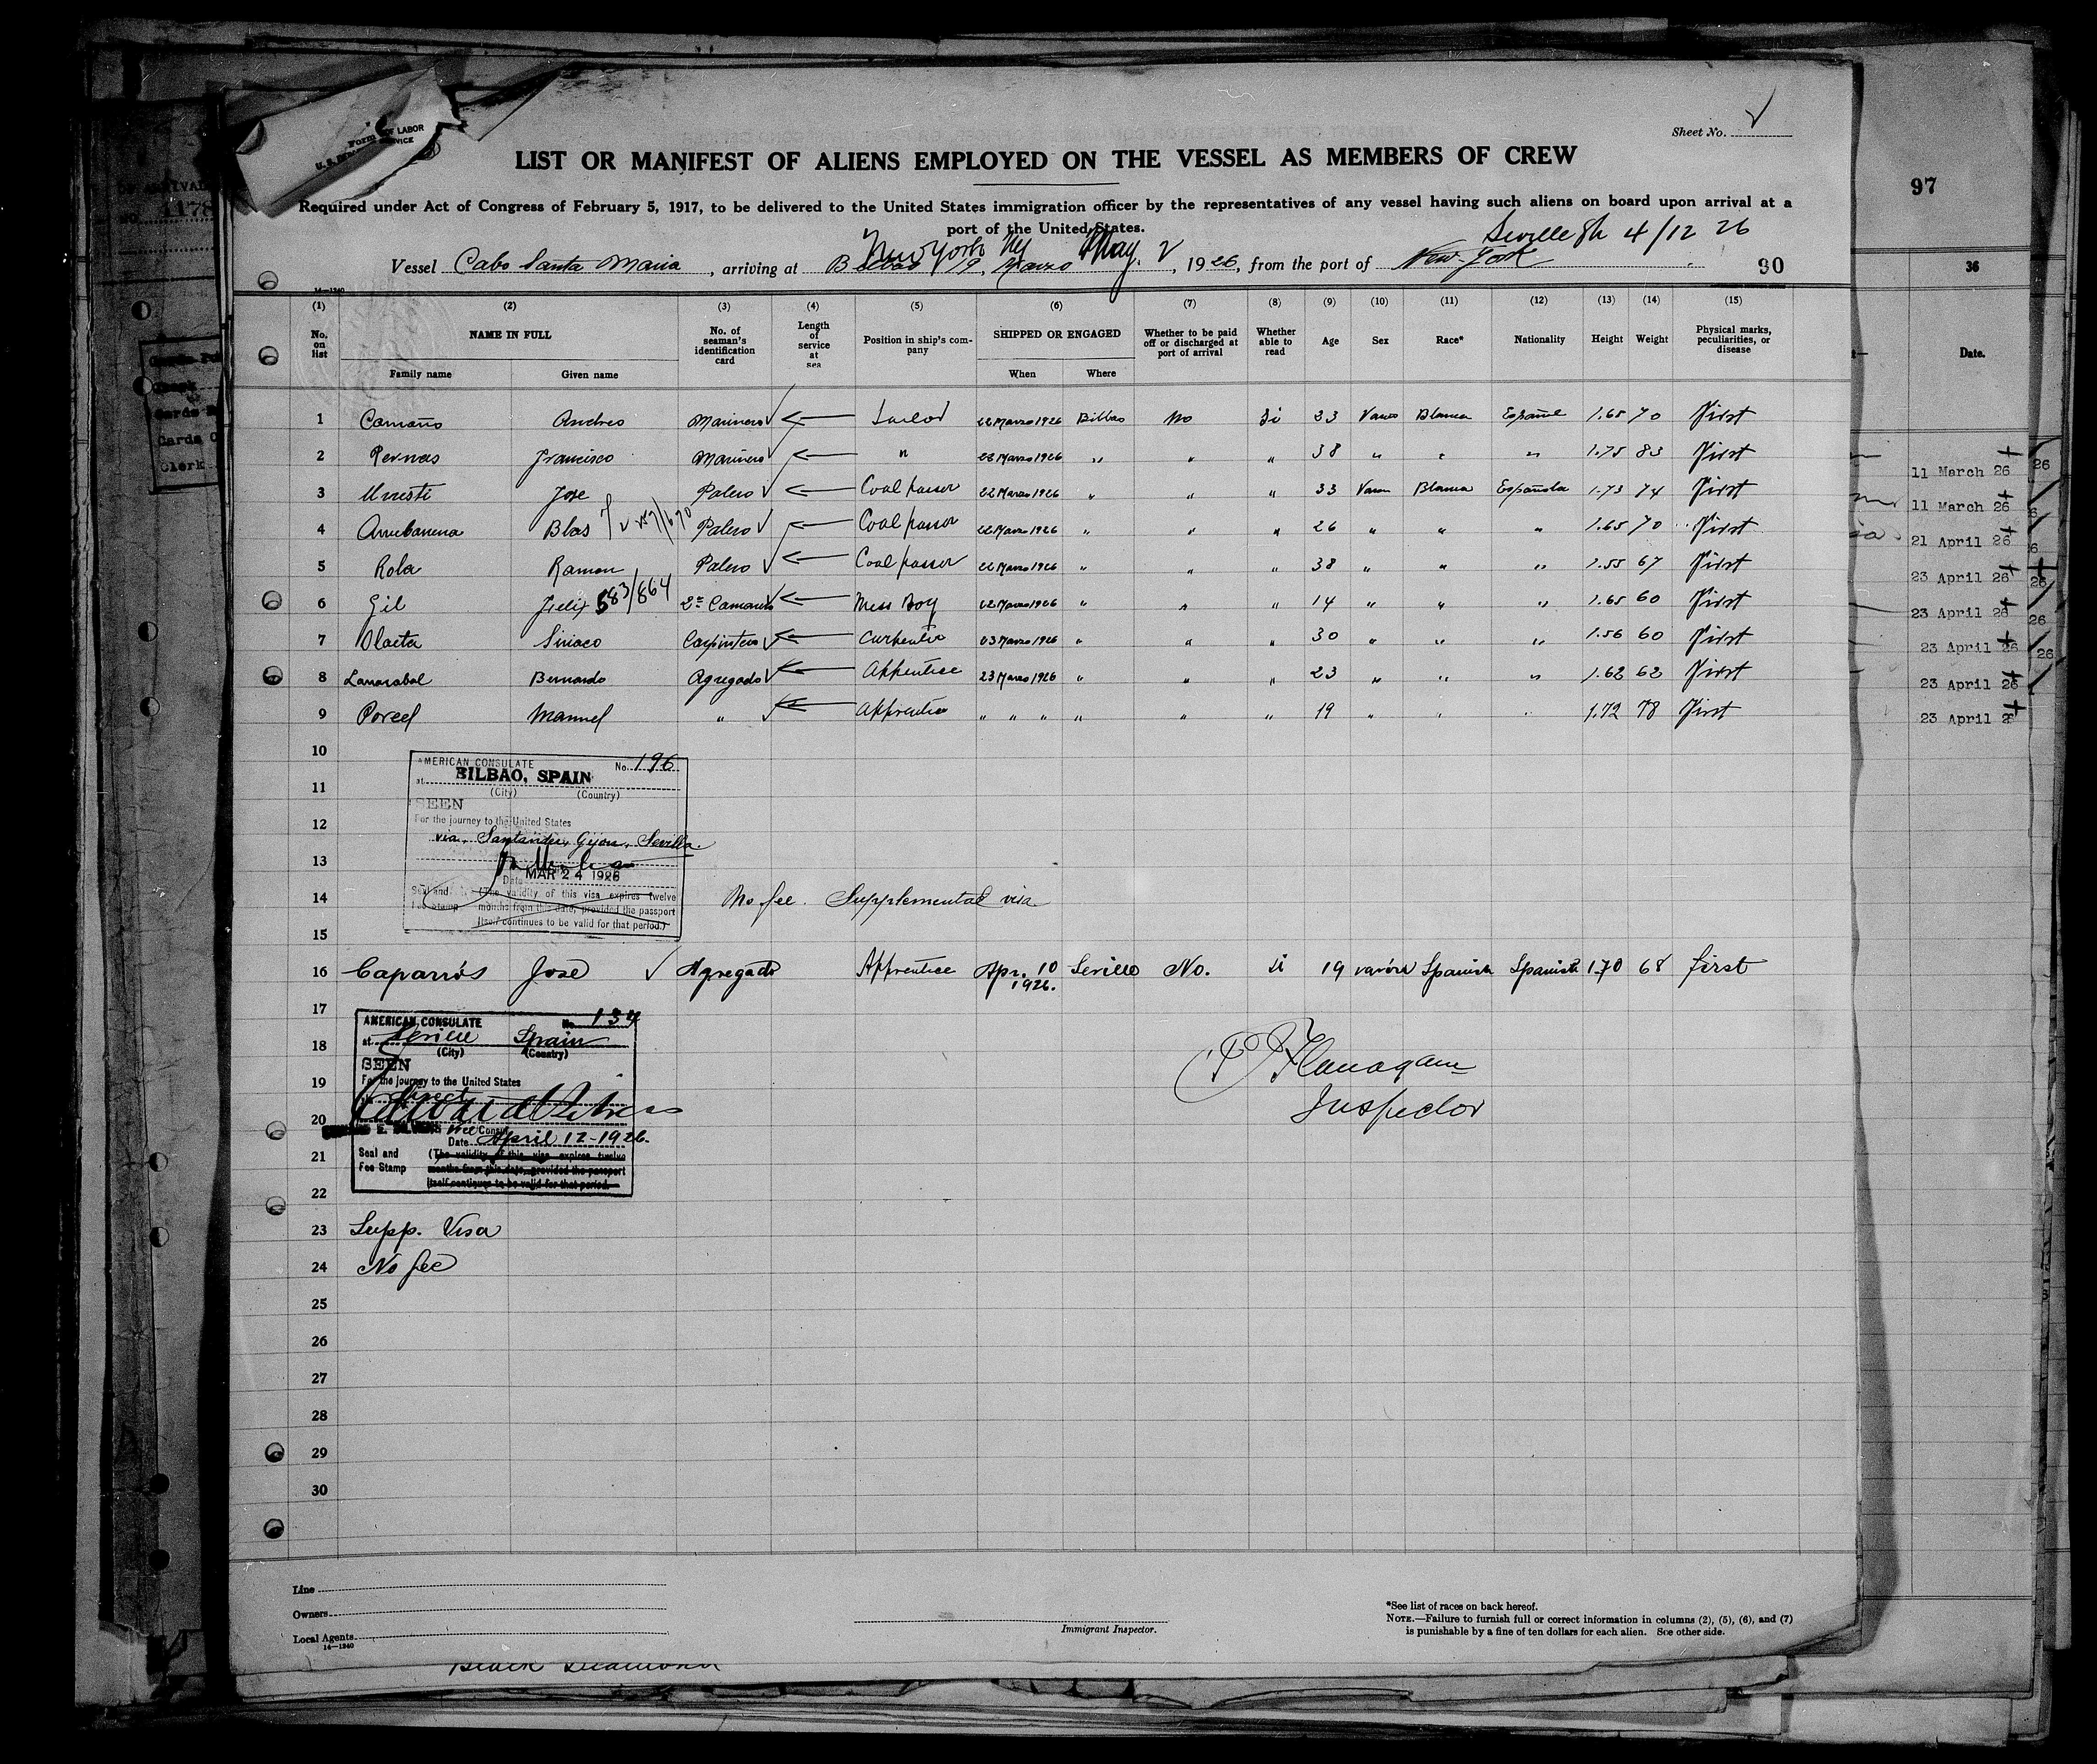 Sheet No. √
LIST OR MANIFEST OF ALIENS EMPLOYED ON THE VESSEL AS MEMBERS OF CREW
97
Required under Act of Congress of February 5, 1917, to be delivered to the United States immigration officer by the representatives of any vessel having such aliens on board upon arrival at a
port of the United States.
New York Ny May. 2 Seville Sp 4/12 26
Vessel Cabo Santa Maria, arriving at Bilbao 19, Marzo, 1926, from the port of New-York
90
36
14—1240
(1) (2) (3) (4) (5) (6) (7) (8) (9) (10) (11) (12) (13) (14) (15)
No. on list NAME IN FULL Family name Given name No. of seaman's identification card Length of service at sea Position in ship's company SHIPPED OR ENGAGED When Where Whether to be paid off or discharged at port of arrival Whether able to read Age Sex Race* Nationality Height Weight Physical marks, peculiarities, or disease
Date.
1 Camaño Andres Marinero √ Sailor 22 Marzo 1926 Bilbao No Si 23 Varon Blanca Español 1.65 70 First
2 Pernas Francisco Marinero √ " 22 Marzo 1926 " " " 38 " " " 1.75 83 First
3 Jose Palero √ Coal passer 22 Marzo 1926 " " " 33 Varon Blanca Española 1.73 74 First
4 Blas Palero √ Coal passer 22 Marzo 1926 " " " 26 " " " 1.65 70 First
5 Rola Ramon Palero √ Coal passer 22 Marzo 1926 " " " 38 " " " 1.55 67 First
6 Gil Felix 583/864 2º Camarero √ Mess Boy 22 Marzo 1926 " " " 14 " " " 1.65 60 First
7 Olaeta Siriaco Carpintero √ Carpenter 23 Marzo 1926 " " " 30 " " " 1.56 60 First
8 Bernardo Agregado √ Apprentice 23 Marzo 1926 " " " 23 " " " 1.62 62 First
9 Porcel Manuel " √ Apprentice " " " " " " 19 " " " 1.72 78 First
11 March 26
11 March 26
21 April 26
23 April 26
23 April 26
23 April 26
23 April 26
23 April 26
10
11
12
13
14
15
AMERICAN CONSULATE No. 196
at BILBAO, SPAIN
(City) (Country)
SEEN
For the journey to the United States
via. Santander, Gijon, Sevilla.
Date MAR 24 1926
Seal and (The validity of this visa expires twelve
Fee Stamp months from this date, provided the passport
itself continues to be valid for that period.)
No fee. Supplemental visa
16 Caparrós José √ Agregado Apprentice Apr. 10 1926. Seville No. si 19 varón Spanish Spanish 1.70 68 first
17
18
19
20
21
22
AMERICAN CONSULATE No. 134
at Seville Spain
(City) (Country)
SEEN
For the journey to the United States
direct
Vice Consul
Date April 12-1926.
Seal and (The validity of this visa expires twelve
Fee Stamp months from this date, provided the passport
itself continues to be valid for that period.
Flanagan
Inspector
23 Supp. Visa
24 No fee
25
26
27
28
29
30
Line
Owners
Local Agents
14—1240
Immigrant Inspector.
*See list of races on back hereof.
NOTE.—Failure to furnish full or correct information in columns (2), (5), (6), and (7)
is punishable by a fine of ten dollars for each alien. See other side.